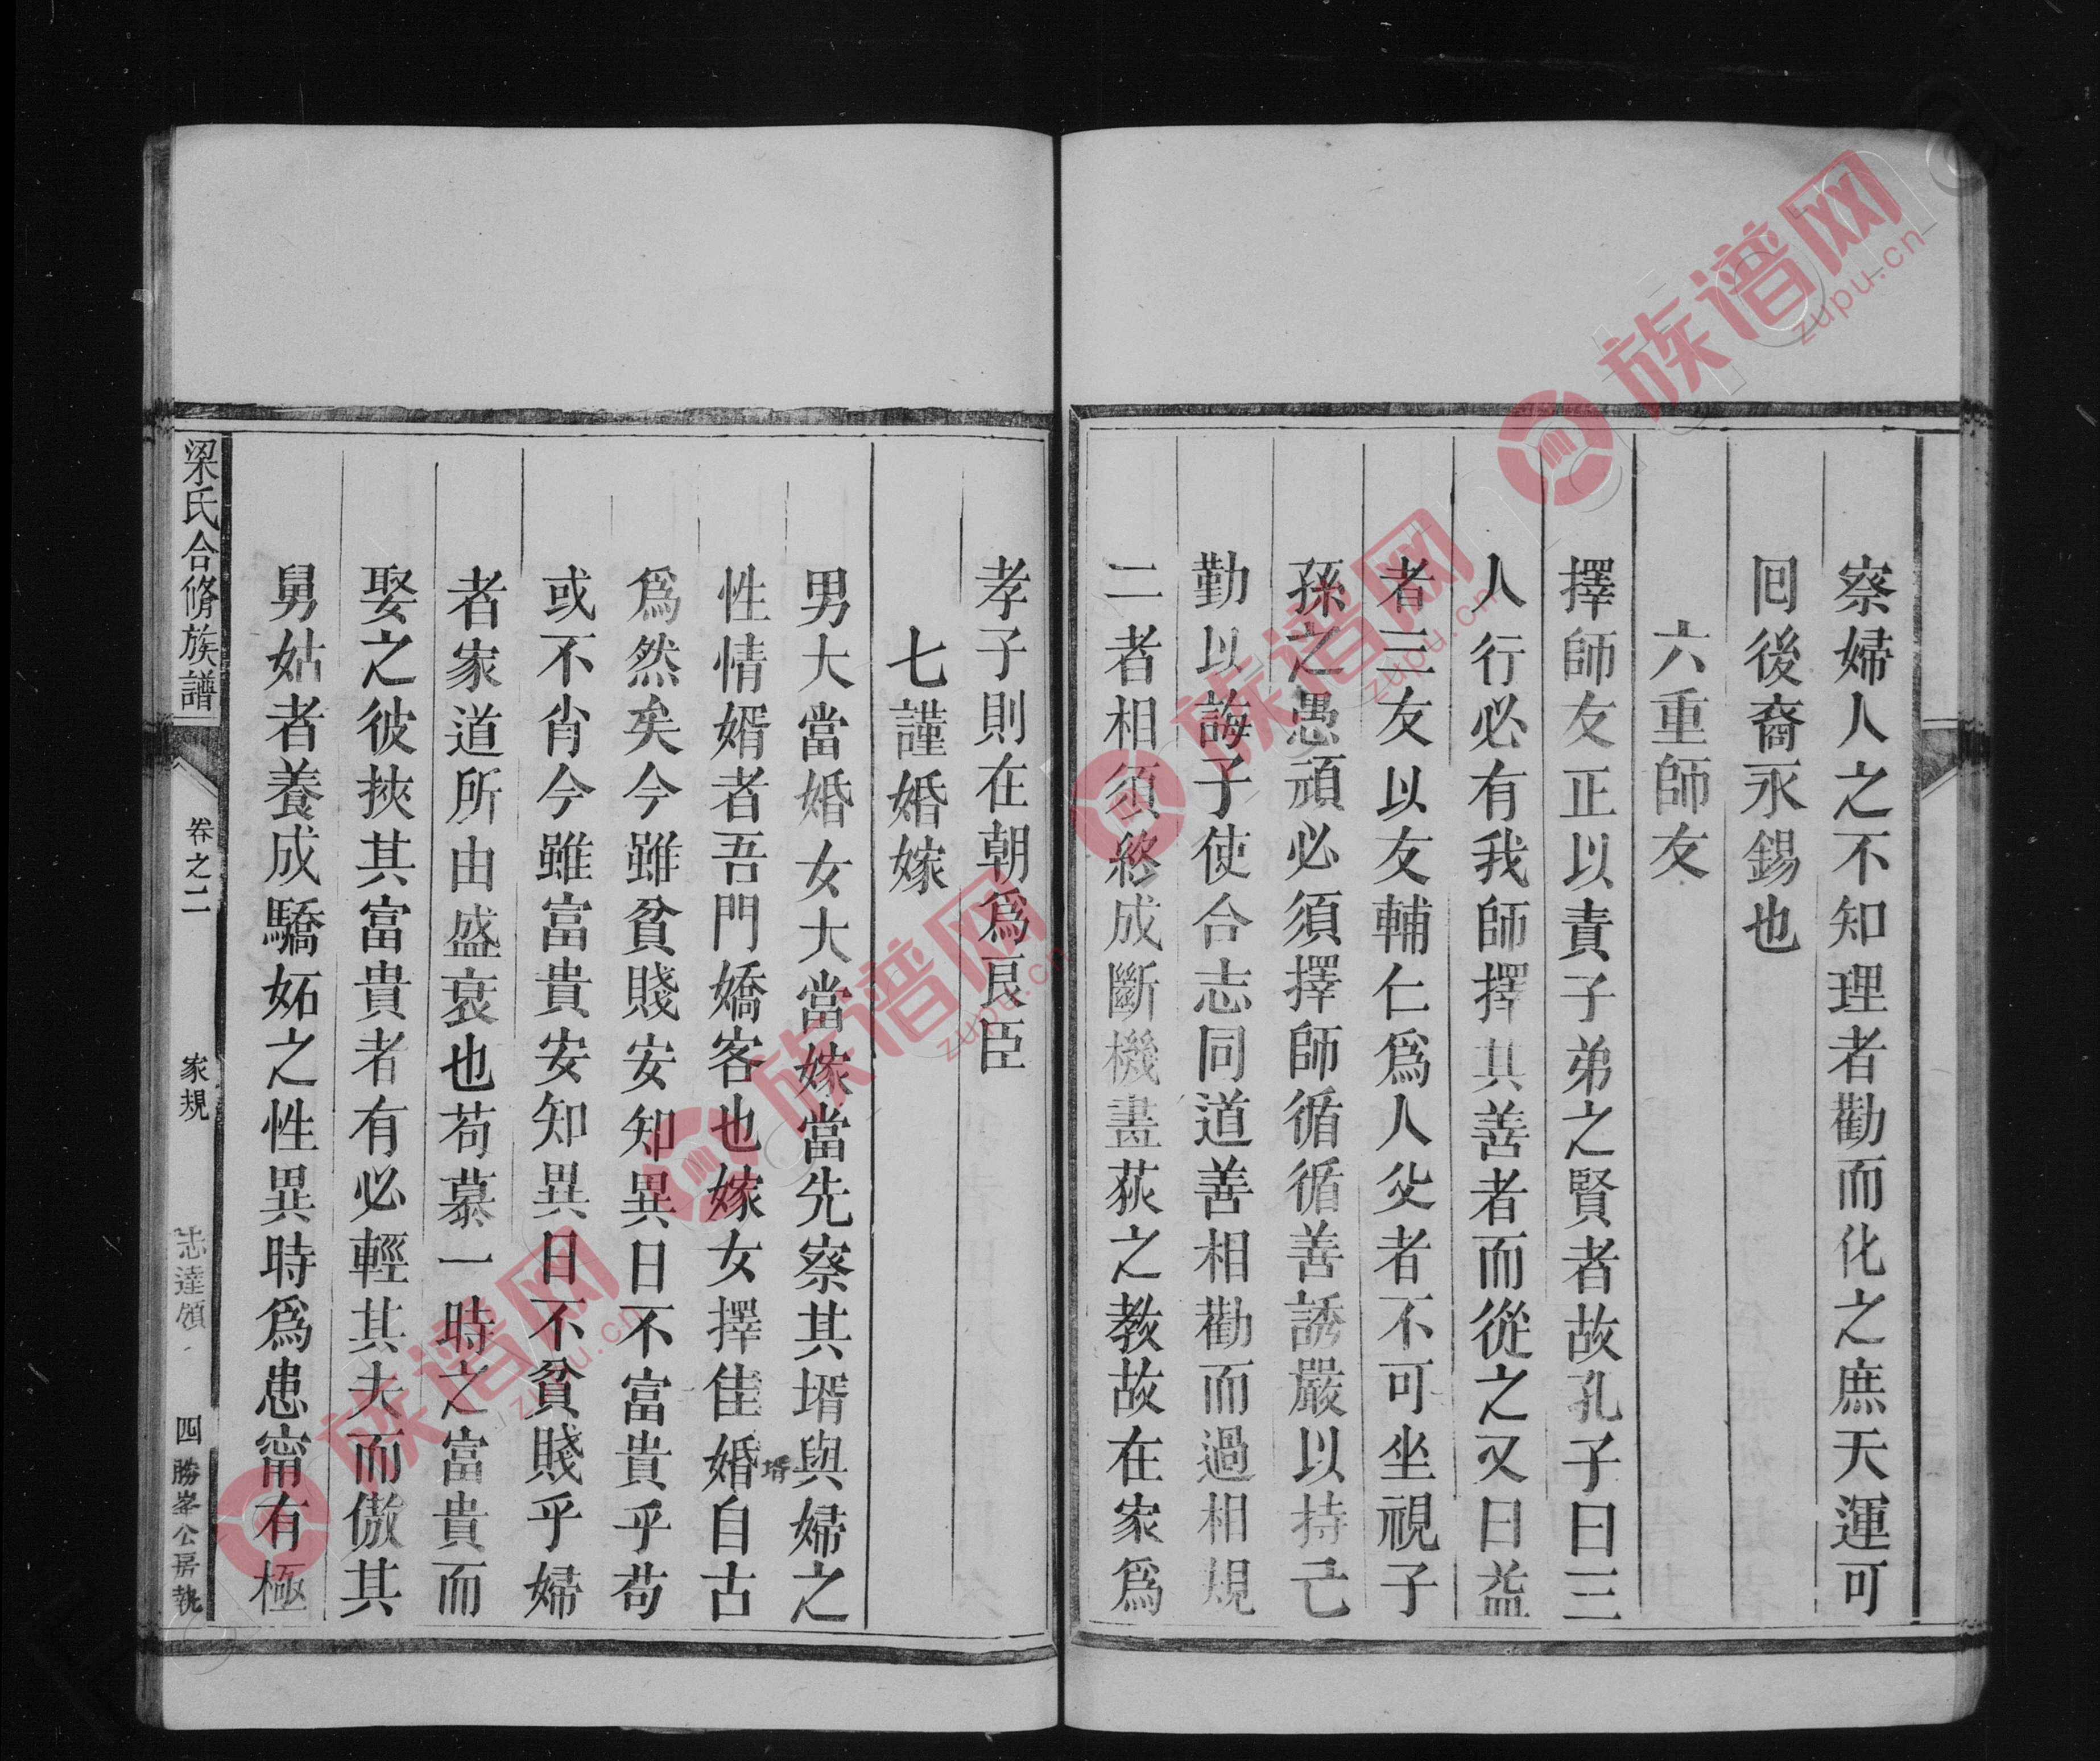 察婦人之不知理者勸而化之庶天運可
回後裔永錫也
六重師友
擇師友正以責子弟之賢者故孔子曰三
人行必有我師擇其善者而從之又曰益
者三友以友輔仁爲人父者不可坐視子
孫之愚頑必須擇師循循善誘嚴以持己
勤以誨子使合志同道善相勸而過相規
二者相須終成斷機畫荻之教故在家爲
孝子則在朝爲良臣
七謹婚嫁
男大當婚女大當嫁當先察其壻與婦之
性情婿者吾門嬌客也嫁女擇佳婚自古
壻
爲然矣今雖貧賤安知異日不富貴乎苟
或不肖今雖富貴安知異日不貧賤乎婦
者家道所由盛衰也苟慕一時之富貴而
娶之彼挾其富貴者有必輕其夫而傲其
舅姑者養成驕妬之性異時爲患甯有極
梁氏合脩族譜
卷之二
家規
志達領
四
勝峯公房執
族谱网
zupu.cn
族谱网
zupu.cn
族谱网
zupu.cn
族谱网
zupu.cn